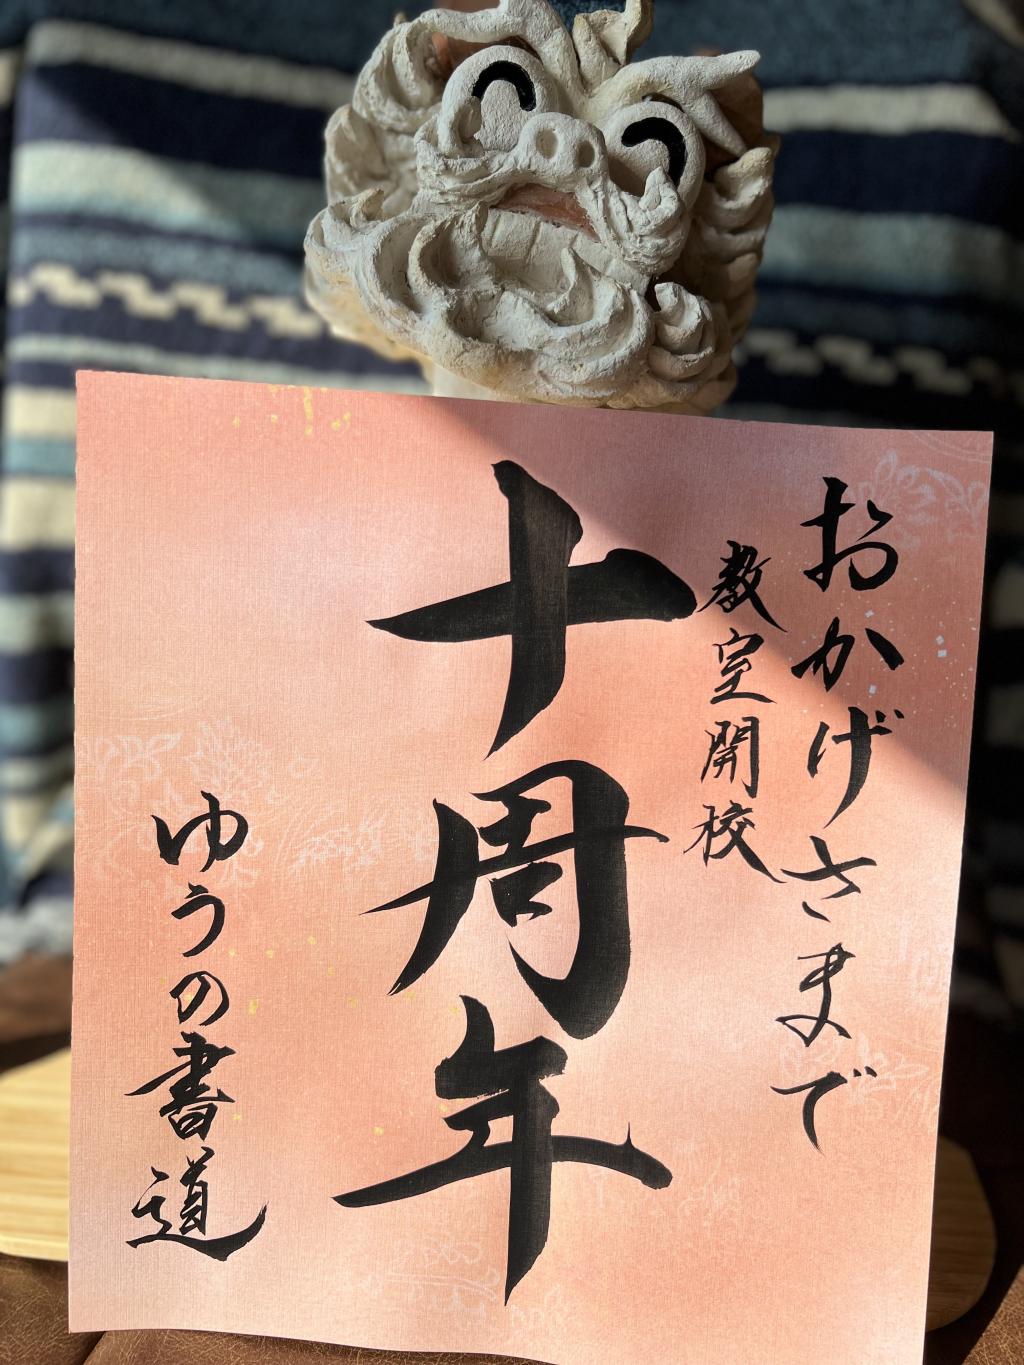 おかげさまで
教室開校
十周年
ゆうの書道